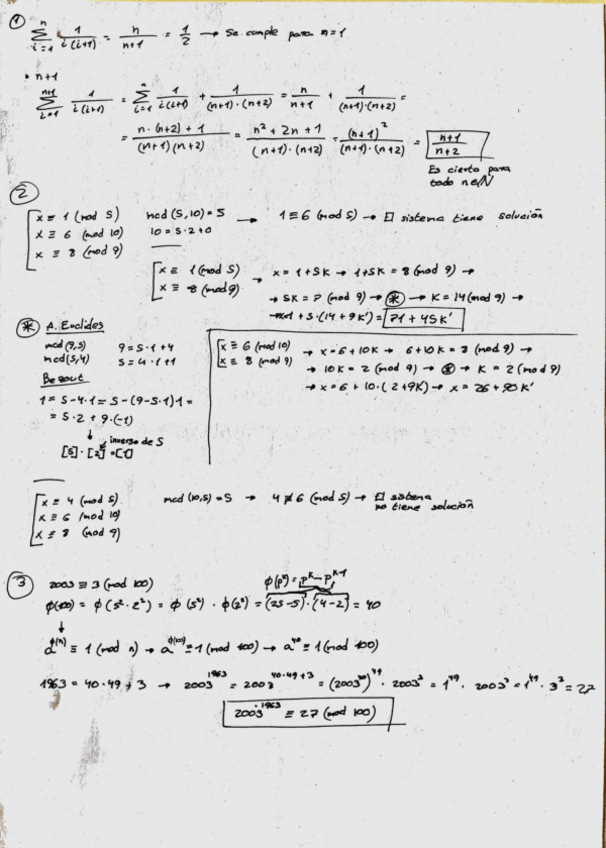 1
∑_{i=1}^{n} 1/(i(i+1)) = n/(n+1) = 1/2 → Se cumple para n=1
• n+1
∑_{i=1}^{n+1} 1/(i(i+1)) = ∑_{i=1}^{n} 1/(i(i+1)) + 1/((n+1)·(n+2)) = n/(n+1) + 1/((n+1)·(n+2)) =
= (n·(n+2)+1)/((n+1)(n+2)) = (n²+2n+1)/((n+1)·(n+2)) = (n+1)²/((n+1)·(n+2)) = (n+1)/(n+2)
Es cierto para
todo n∈N
2
x ≡ 1 (mod 5) mcd (5,10)=5 → 1≡6 (mod 5) → El sistema tiene solución
x ≡ 6 (mod 10) 10=5·2+0
x ≡ 8 (mod 9)
x ≡ 1 (mod 5) → x=1+5K → 1+5K=8 (mod 9) →
x ≡ 8 (mod 9) → 5K=7 (mod 9) → * → K=14 (mod 9) →
→ x=1+5·(14+9K') = 71+45K'
* A. Euclides
mcd (9,5) 9=5·1+4
mcd (5,4) 5=4·1+1
Bezout
1=5-4·1=5-(9-5·1)1=
=5·2+9·(-1)
↓ inverso de 5
[5]·[2]=[1]
x ≡ 6 (mod 10) → x=6+10K → 6+10K=8 (mod 9) →
x ≡ 8 (mod 9) → 10K=2 (mod 9) → * → K=2 (mod 9)
→ x=6+10·(2+9K) → x=26+90K'
x ≡ 4 (mod 5) mcd (10,5)=5 → 4≢6 (mod 5) → El sistema
x ≡ 6 (mod 10) no tiene solución
x ≡ 8 (mod 9)
3
2003 ≡ 3 (mod 100) ϕ(p^k)=p^k-p^{k-1}
ϕ(100) = ϕ(5²·2²) = ϕ(5²)·ϕ(2²) = (25-5)·(4-2) = 40
↓
a^{ϕ(n)} ≡ 1 (mod n) → a^{ϕ(100)} ≡ 1 (mod 100) → a^{40} ≡ 1 (mod 100)
1963 = 40·49+3 → 2003^{1963} = 2003^{40·49+3} = (2003^{40})^{49}·2003³ = 1^{49}·2003³ = 1^{49}·3³ = 27
2003^{1963} ≡ 27 (mod 100)